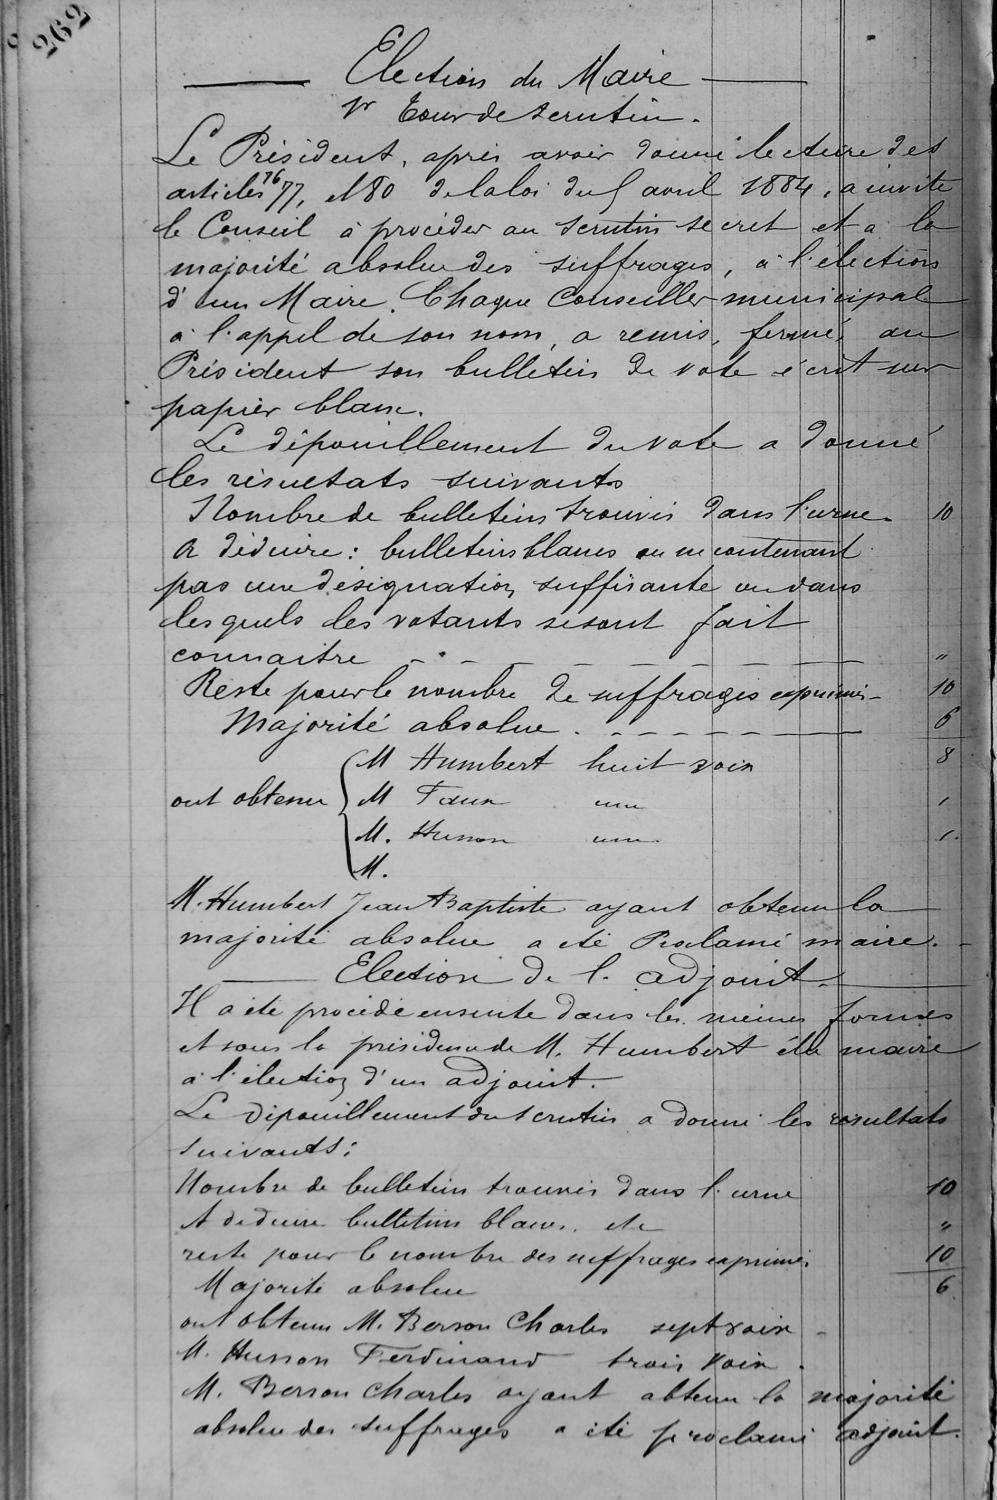 262
Election du Maire
1r Tour de scrutin.
Le Président, après avoir donné lecture des
articles 76 77, et 80 de la loi du 5 avril 1884, a invité
le Conseil à procéder au scrutin secret et a la
majorité absolue des suffrages, à l'élection
d'un Maire. Chaque Conseiller municipal
à l'appel de son nom, a remis, fermé, au
Président son bulletin de vote écrit sur
papier blanc.
Le dépouillement du vote a donné
les résultats suivants
Nombre de bulletins trouvés dans l'urne. 10
A déduire : bulletins blancs ou ne contenant
pas une désignation suffisante ou dans
lesquels les votants se sont fait
connaitre - - - - - - - - "
Reste pour le nombre de suffrages exprimés - 10
Majorité absolue. - - - - - - - 6
M Humbert huit voix 8
ont obtenu M Faux une 1
M. Husson une. 1.
M.
M. Humbert Jean Baptiste ayant obtenu la
majorité absolue a été Proclamé maire. -
Election de l'adjoint.
Il a été procédé ensuite dans les mêmes formes
et sous la présidence de M. Humbert élu maire
à l'élection d'un adjoint.
Le dépouillement du scrutin a donné les résultats
suivants :
Nombre de bulletins trouvés dans l'urne 10
A déduire bulletins blancs. etc "
reste pour le nombre des suffrages exprimés 10
Majorité absolue 6.
ont obtenu M. Berson Charles sept voix -
M. Husson Ferdinand trois voix.
M. Berson Charles ayant obtenu la majorité
absolue des suffrages a été proclamé adjoint.